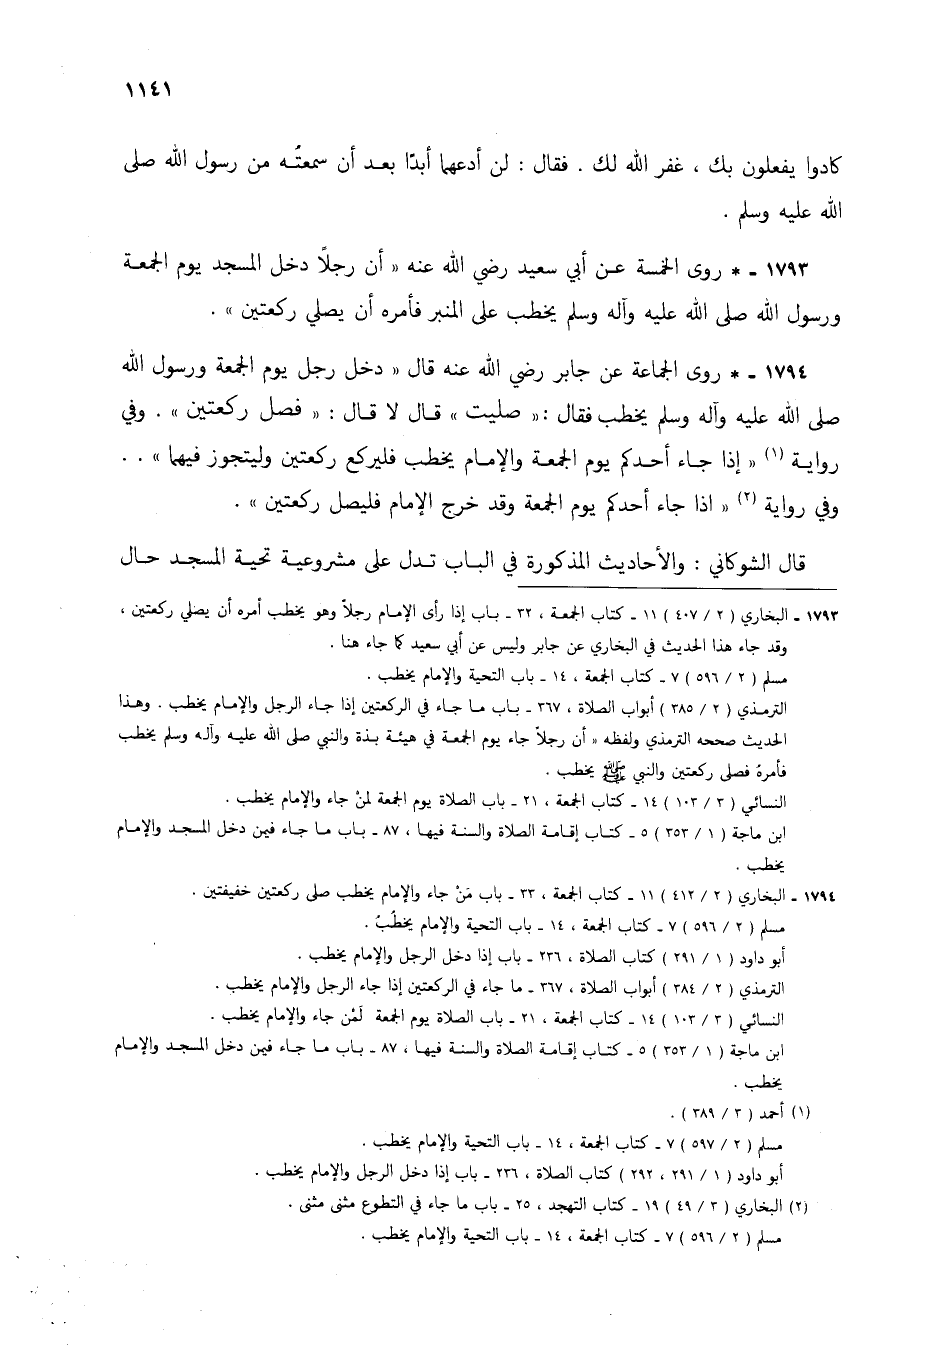 ١١٤١
كادوا يفعلون بك ، غفر الله لك . فقال : لن أدعها أبدًا بعد أن سمعتُه من رسول الله صلى
الله عليه وسلم .
١٧٩٣ ـ * روى الخمسة عن أبي سعيد رضي الله عنه « أن رجلاً دخل المسجد يوم الجمعة
ورسول الله صلى الله عليه وآله وسلم يخطب على المنبر فأمره أن يصلي ركعتين » .
١٧٩٤ ـ * روى الجماعة عن جابر رضي الله عنه قال « دخل رجل يوم الجمعة ورسول الله
صلى الله عليه وآله وسلم يخطب فقال :« صليت » قال لا قال : « فصل ركعتين » . وفي
رواية (١) « إذا جاء أحدكم يوم الجمعة والإمام يخطب فليركع ركعتين وليتجوز فيهما » . .
وفي رواية (٢) « اذا جاء أحدكم يوم الجمعة وقد خرج الإمام فليصل ركعتين » .
قال الشوكاني : والأحاديث المذكورة في الباب تدل على مشروعية تحية المسجد حال
١٧٩٣ ـ البخاري ( ٢ / ٤٠٧ ) ١١ ـ كتاب الجمعة ، ٣٢ ـ باب إذا رأى الإمام رجلاً وهو يخطب أمره أن يصلي ركعتين ،
وقد جاء هذا الحديث في البخاري عن جابر وليس عن أبي سعيد كما جاء هنا .
مسلم ( ٢ / ٥٩٦ ) ٧ ـ كتاب الجمعة ، ١٤ ـ باب التحية والإمام يخطب .
الترمذي ( ٢ / ٣٨٥ ) أبواب الصلاة ، ٣٦٧ ـ باب ما جاء في الركعتين إذا جاء الرجل والإمام يخطب . وهذا
الحديث صححه الترمذي ولفظه « أن رجلاً جاء يوم الجمعة في هيئة بذة والنبي صلى الله عليه وآله وسلم يخطب
فأمرهُ فصلى ركعتين والنبي ﷺ يخطب .
النسائي ( ٣ / ١٠٣ ) ١٤ ـ كتاب الجمعة ، ٢١ ـ باب الصلاة يوم الجمعة لمنْ جاء والإمام يخطب .
ابن ماجة ( ١ / ٣٥٣ ) ٥ ـ كتاب إقامة الصلاة والسنة فيها ، ٨٧ ـ باب ما جاء فيمن دخل المسجد والإمام
يخطب .
١٧٩٤ ـ البخاري ( ٢ / ٤١٢ ) ١١ ـ كتاب الجمعة ، ٣٣ ـ باب مَنْ جاء والإمام يخطب صلى ركعتين خفيفتين .
مسلم ( ٢ / ٥٩٦ ) ٧ ـ كتاب الجمعة ، ١٤ ـ باب التحية والإمام يخطُبُ .
أبو داود ( ١ / ٢٩١ ) كتاب الصلاة ، ٢٣٦ ـ باب إذا دخل الرجل والإمام يخطب .
الترمذي ( ٢ / ٣٨٤ ) أبواب الصلاة ، ٣٦٧ ـ ما جاء في الركعتين إذا جاء الرجل والإمام يخطب .
النسائي ( ٣ / ١٠٣ ) ١٤ ـ كتاب الجمعة ، ٢١ ـ باب الصلاة يوم الجمعة لَمْن جاء والإمام يخطب .
ابن ماجة ( ١ / ٣٥٣ ) ٥ ـ كتاب إقامة الصلاة والسنة فيها ، ٨٧ ـ باب ما جاء فيمن دخل المسجد والإمام
يخطب .
(١) أحمد ( ٣ / ٣٨٩ ) .
مسلم ( ٢ / ٥٩٧ ) ٧ ـ كتاب الجمعة ، ١٤ ـ باب التحية والإمام يخطب .
أبو داود ( ١ / ٢٩١ ، ٢٩٢ ) كتاب الصلاة ، ٢٣٦ ـ باب إذا دخل الرجل والإمام يخطب .
(٢) البخاري ( ٣ / ٤٩ ) ١٩ ـ كتاب التهجد ، ٢٥ ـ باب ما جاء في التطوع مثنى مثنى .
مسلم ( ٢ / ٥٩٦ ) ٧ ـ كتاب الجمعة ، ١٤ ـ باب التحية والإمام يخطب .